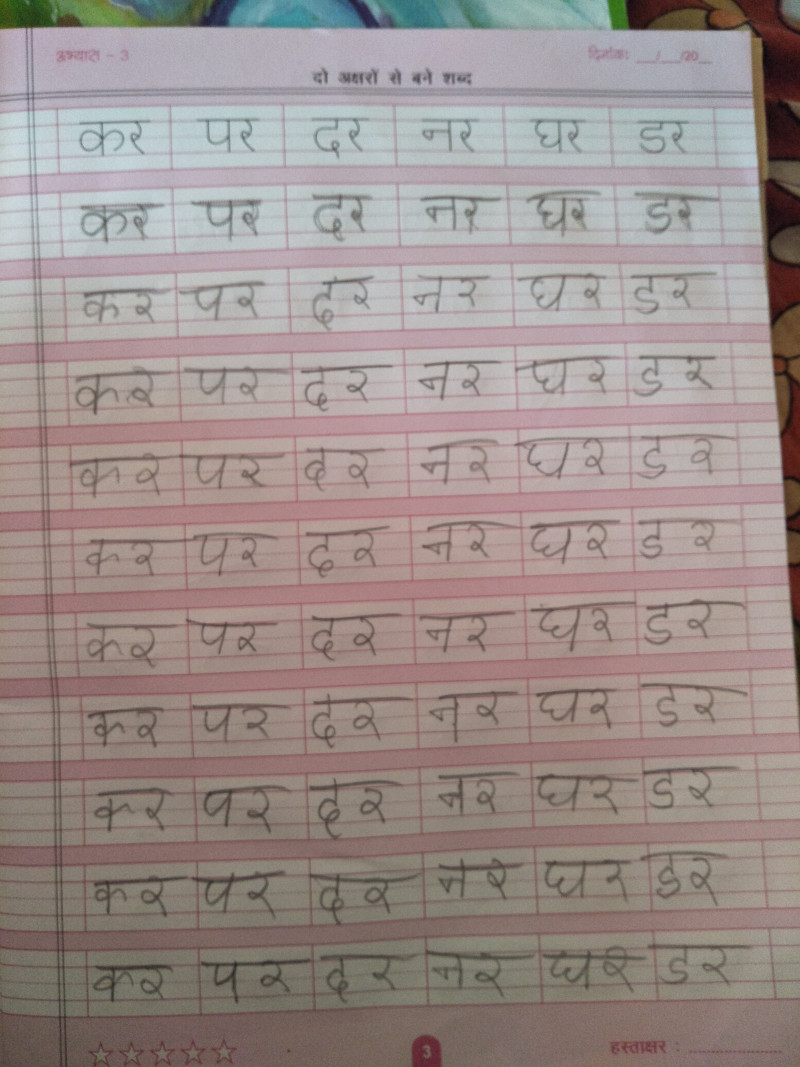 अभ्यास - 3 दिनांकः __/__/20__
दो अक्षरों से बने शब्द
कर पर दर नर घर डर
कर पर दर नर घर डर
कर पर दर नर घर डर
कर पर दर नर घर डर
कर पर दर नर घर डर
कर पर दर नर घर डर
कर पर दर नर घर डर
कर पर दर नर घर डर
कर पर दर नर घर डर
कर पर दर नर घर डर
कर पर दर नर घर डर
3 हस्ताक्षर : ....................